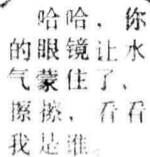 哈哈，你
的眼镜让水
气蒙住了，
擦擦，看看
我是谁。